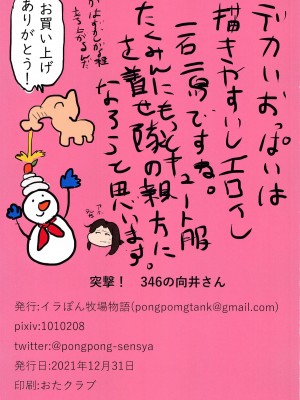 デカいおっぱいは
描きやすいしエロいし
一石二鳥ですね。
たくみんにもっとキュート服
を着せ隊の親方に
なろうと思います。
お買い上げ
ありがとう!
突撃! 346の向井さん
発行:イラぽん牧場物語(pongpomgtank@gmail.com)
pixiv:1010208
twitter:@pongpong-sensya
発行日:2021年12月31日
印刷:おたクラブ